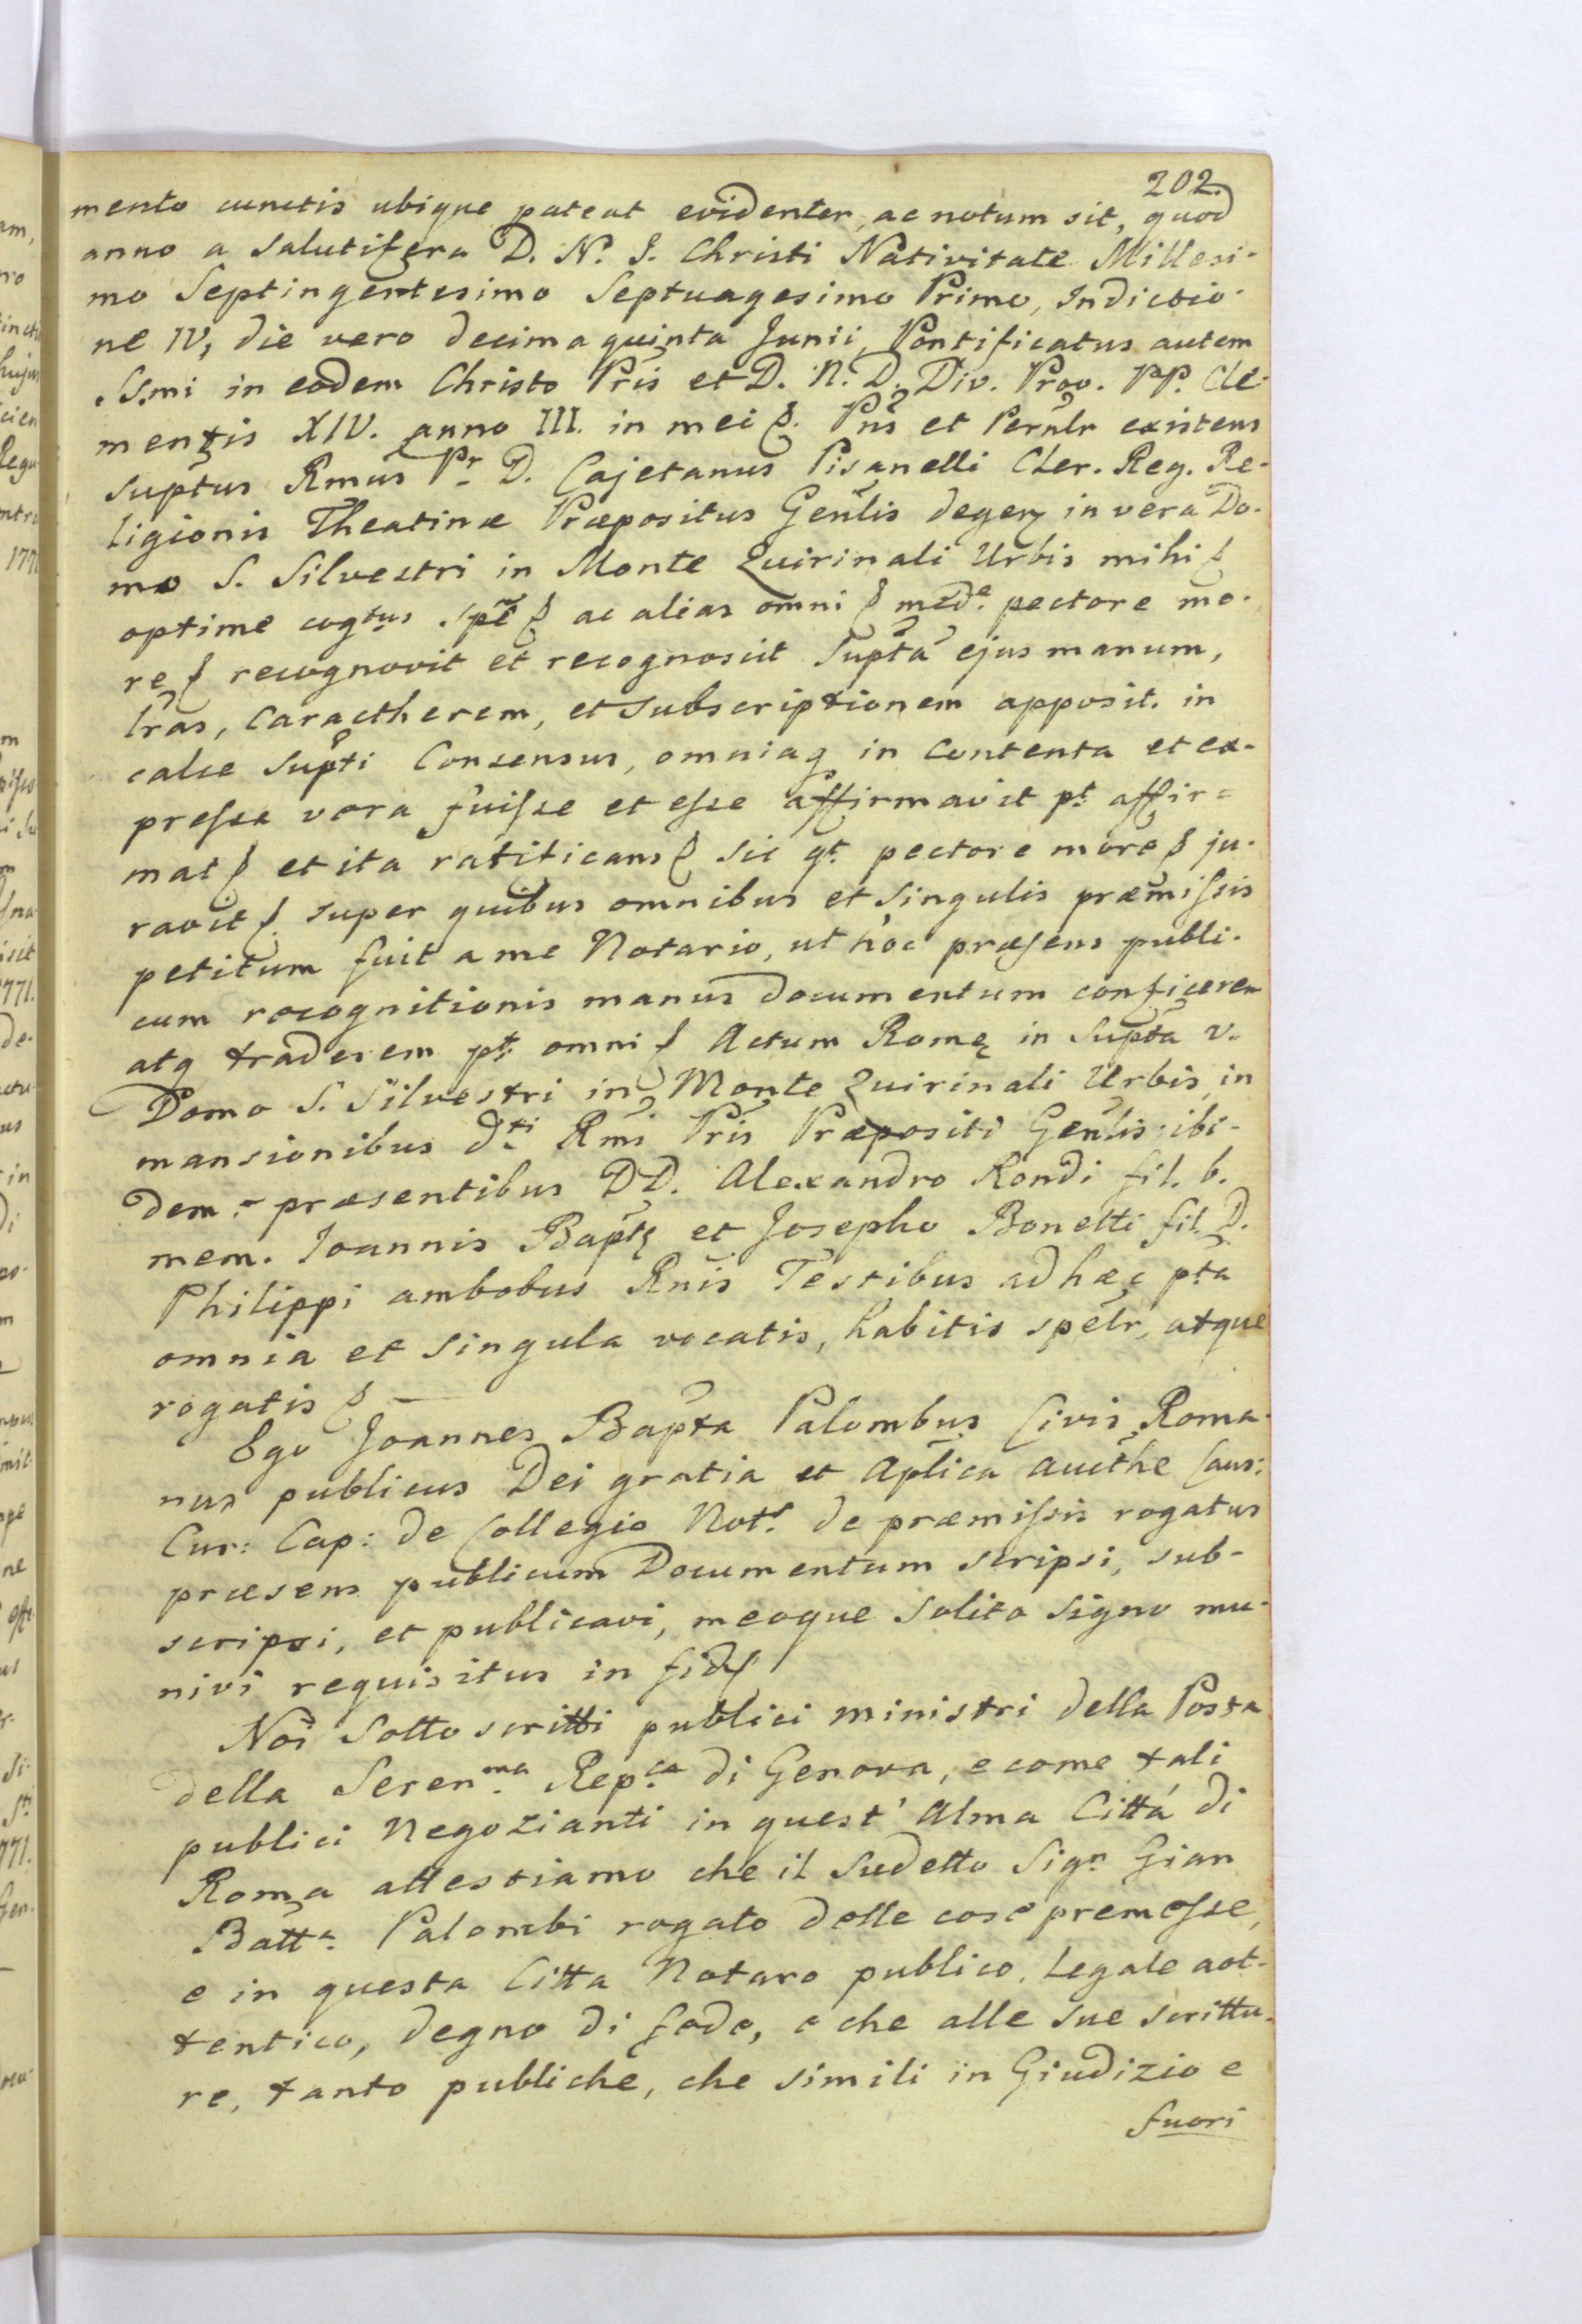 202.
mento cunctis ubique pateat evidenter, ac notum sit, quod
anno a Salutifera D. N. J. Christi Nativitate Millesi-
mo Septingentesimo Septuagesimo Primo, Indictio-
ne IV, die vero decima quinta Junii, Pontificatus autem
SSmi in eodem Christo Pris et D. N. D. Div. Prov. PP. Cle-
mentis XIV. anno III. in mei &. Pñs et Persnlr existens
suptus Rmus Pr. D. Cajetanus Pisanelli Cler. Reg. Re-
ligionis Theatinæ Præpositus Genlis degens in vera Do-
mo S. Silvestri in Monte Quirinali Urbis mihi &
optime cogtus spe & ac alias omni & mede. pectore mo-
re & recognovit et recognoscit Suptã ejus manum,
lrãs, Caractherem, et subscriptionem apposit. in
calce Supti Consensus, omniaq in Contenta et ex-
pressa vera fuisse et esse affirmavit pt. affir=
mat & et ita ratificans & sic qt. pectore more & ju-
ravit &. super quibus omnibus et singulis præmissis
petitum fuit a me Notario, ut hoc præsens publi-
cum recognitionis manus documentum conficerem
atq traderem pt. omni & Actum Romę in Suptã v.
Domo S. Silvestri in Monte Quirinali Urbis, in
mansionibus dti Rmi Pris Præpositi Genlis ibi-
dem præsentibus DD. Alexandro Rondi fil. b.
mem. Joannis Baptę et Josepho Bonetti fil. D.
Philippi ambobus Rnis Testibus ad hæc pta
omnia et singula vocatis, habitis spelr, atque
rogatis & —
Ego Joannes Bapta Palombus Civis Roma-
nus publicus Dei gratia et Aplica aucthe Caus:
Cur: Cap: de Collegio Nots. de præmissis rogatus
præsens publicum Documentum scripsi, sub-
scripsi, et publicavi, meoque solito signo mu-
nivi requisitus in fid&
Noi Sotto scritti publici ministri della Posta
della Seren.ma Rep.ca di Genova, e come tali
publici Negozianti in quest' Alma Cittá di
Roma attestiamo che il sudetto Sign Gian
Batta. Palombi rogato delle cose premesse,
e in questa Citta Notaro publico, Legale aot-
tentico, degno di fede, e che alle sue scrittu-
re, tanto publiche, che simili in Giudizio e
fuori